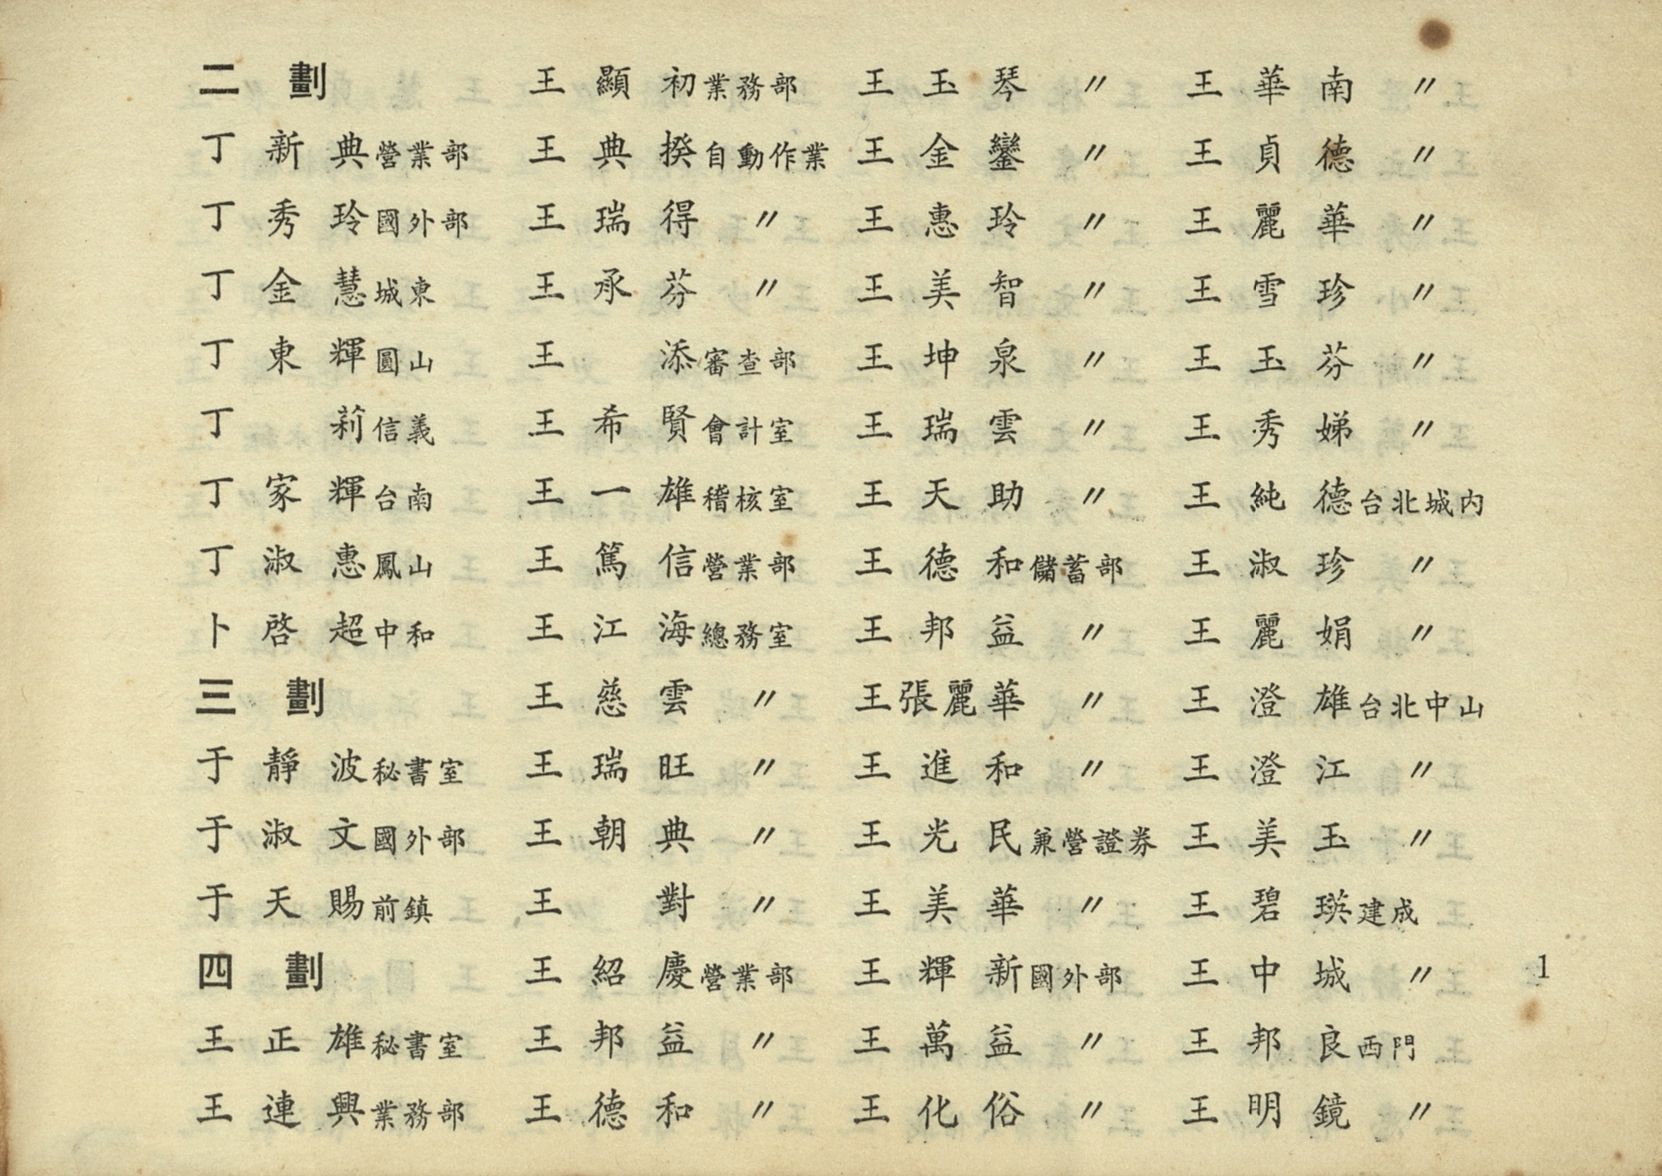 二劃
丁新典營業部
丁秀玲國外部
丁金慧城東
丁東輝圓山
丁莉信義
丁家輝台南
丁淑惠鳳山
卜啓超中和
三劃
于靜波秘書室
于淑文國外部
于天賜前鎮
四劃
王正雄秘書室
王連興業務部
王顯初業務部
王典揆自動作業
王瑞得〃
王承芬〃
王添審查部
王希賢會計室
王一雄稽核室
王篤信營業部
王江海總務室
王慈雲〃
王瑞旺〃
王朝典〃
王對〃
王紹慶營業部
王邦益〃
王德和〃
王玉琴〃
王金鑾〃
王惠玲〃
王美智〃
王坤泉〃
王瑞雲〃
王天助〃
王德和儲蓄部
王邦益〃
王張麗華〃
王進和〃
王光民兼營證券
王美華〃
王輝新國外部
王萬益〃
王化俗〃
王華南〃
王貞德〃
王麗華〃
王雪珍〃
王玉芬〃
王秀娣〃
王純德台北城內
王淑珍〃
王麗娟〃
王澄雄台北中山
王澄江〃
王美玉〃
王碧瑛建成
王中城〃
王邦良西門
王明鏡〃
1